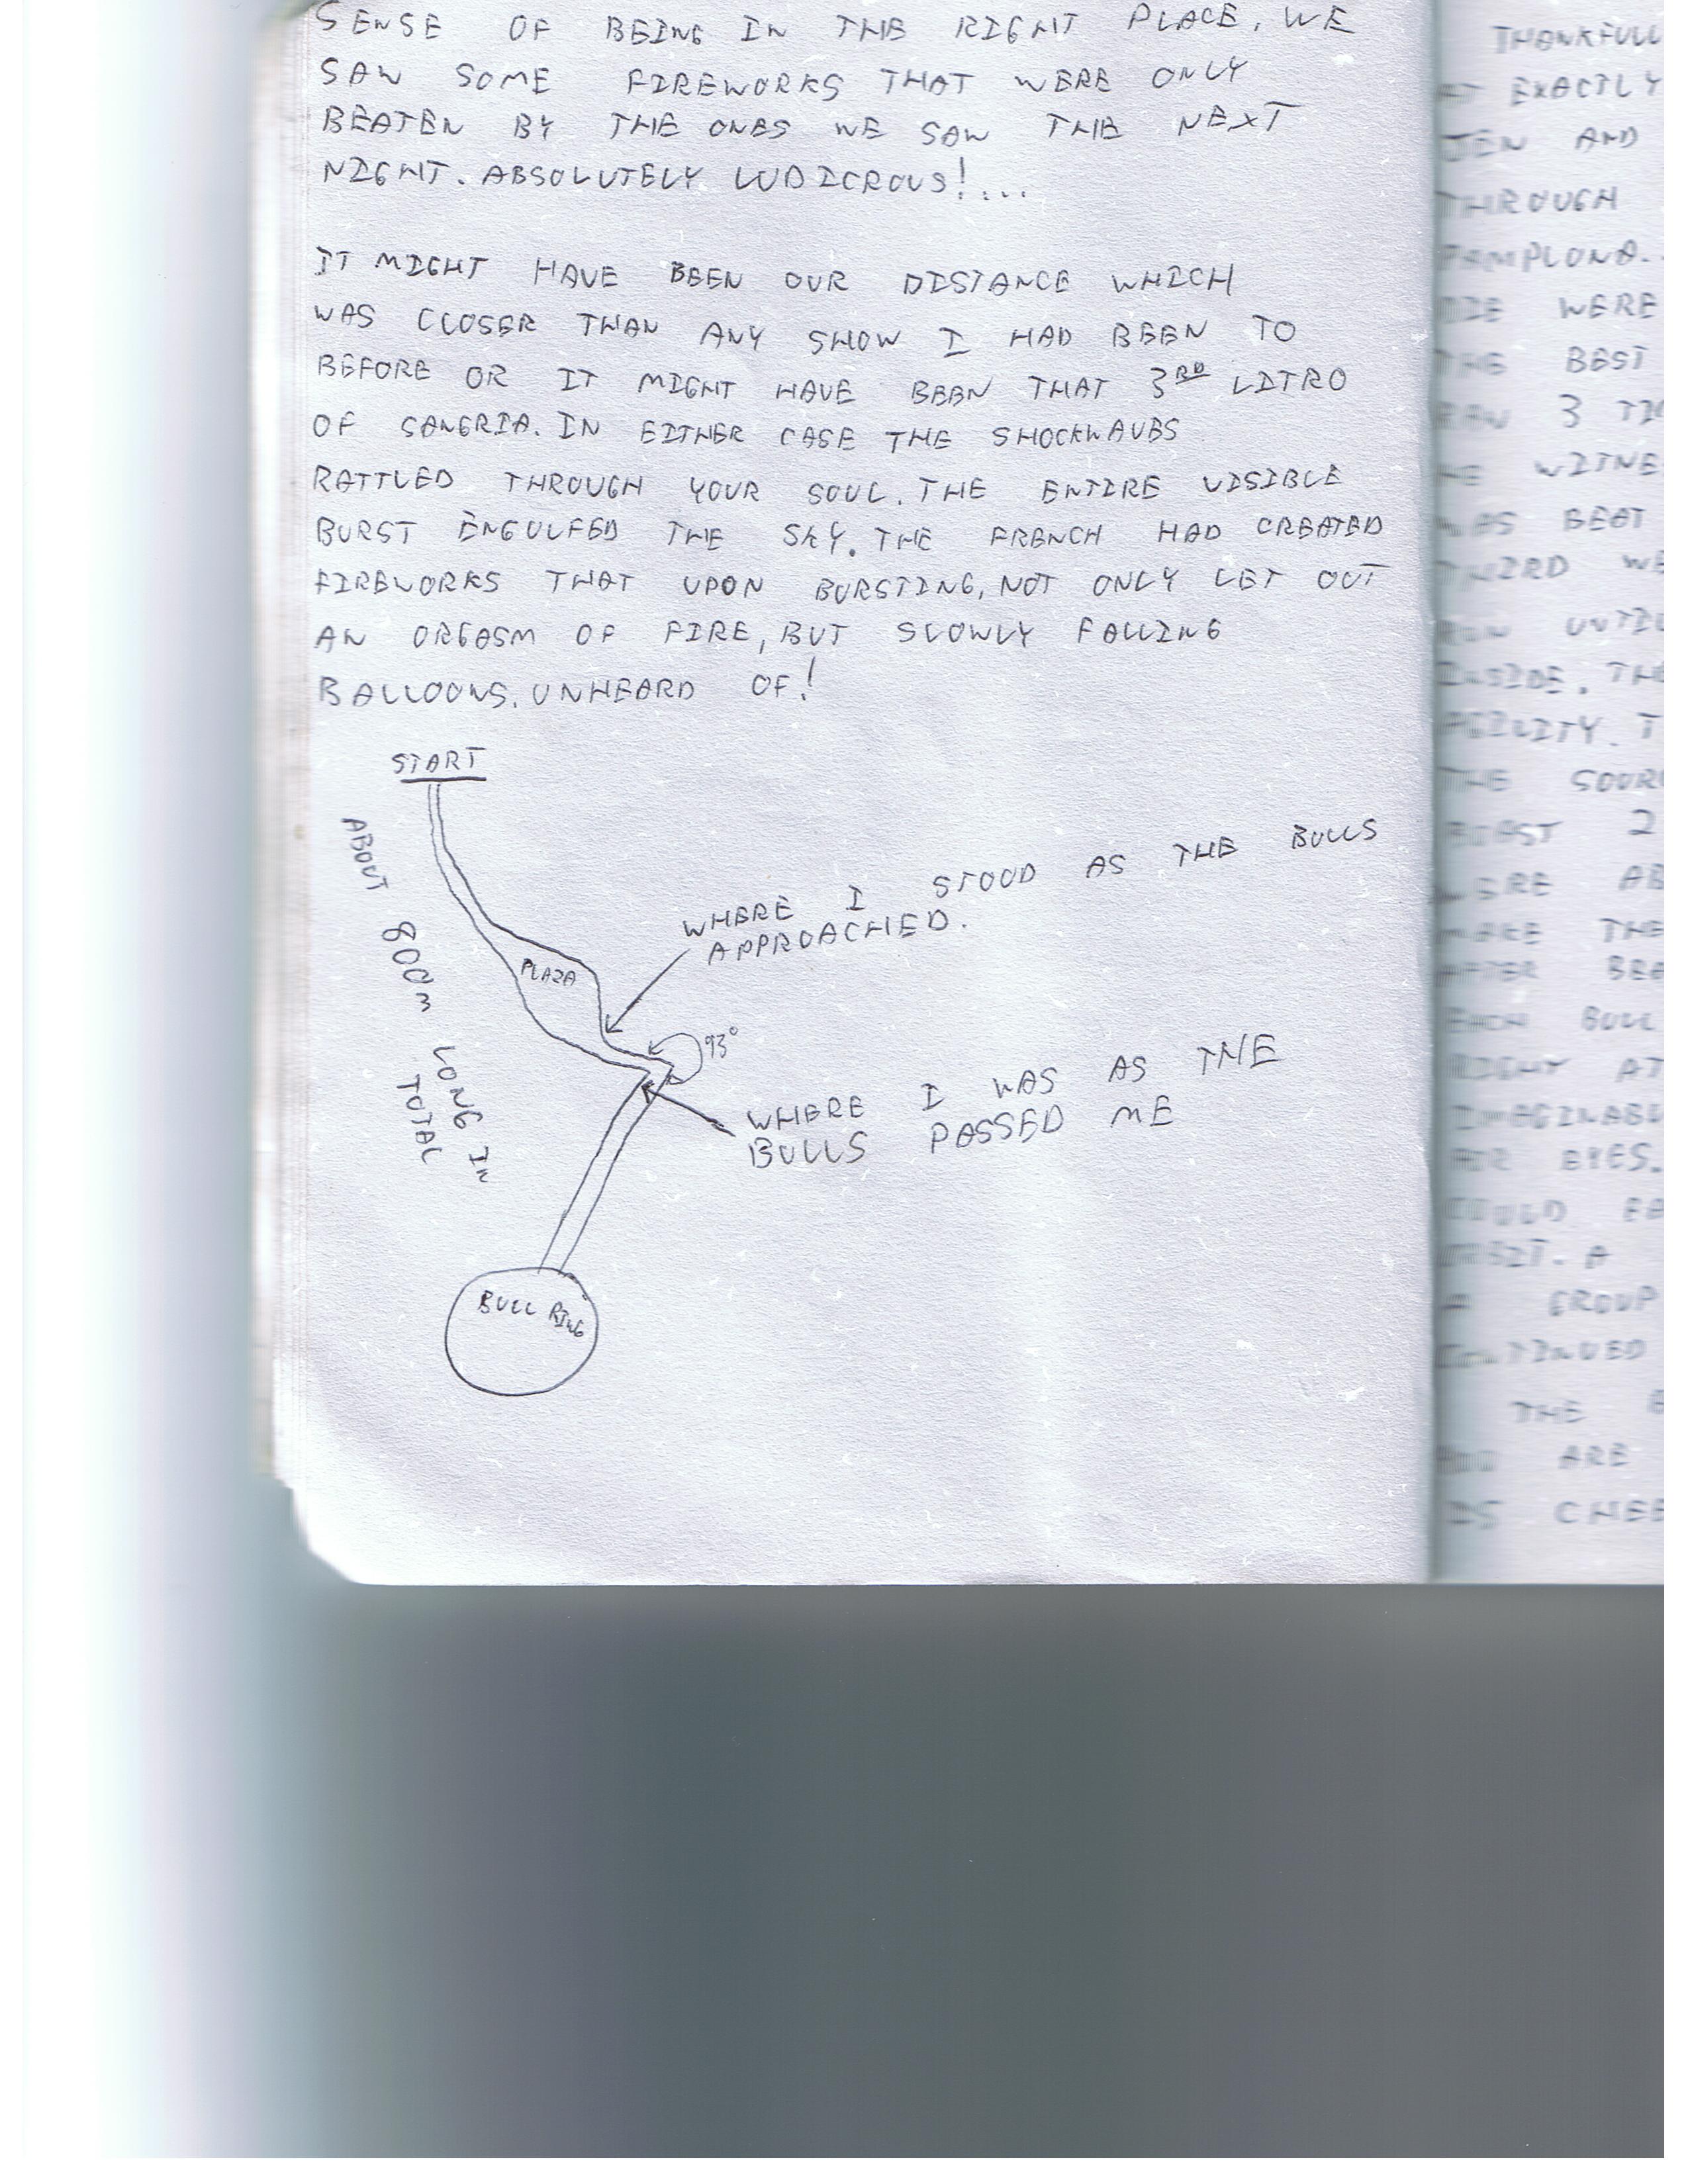 SENSE OF BEING IN THE RIGHT PLACE, WE
SAW SOME FIREWORKS THAT WERE ONLY
BEATEN BY THE ONES WE SAW THE NEXT
NIGHT. ABSOLUTELY LUDICROUS!...
IT MIGHT HAVE BEEN OUR DISTANCE WHICH
WAS CLOSER THAN ANY SHOW I HAD BEEN TO
BEFORE OR IT MIGHT HAVE BEEN THAT 3RD LITRO
OF SANGRIA. IN EITHER CASE THE SHOCKWAVES
RATTLED THROUGH YOUR SOUL. THE ENTIRE VISIBLE
BURST ENGULFED THE SKY. THE FRENCH HAD CREATED
FIREWORKS THAT UPON BURSTING, NOT ONLY LET OUT
AN ORGASM OF FIRE, BUT SLOWLY FALLING
BALLOONS. UNHEARD OF!
START
ABOUT 800m LONG IN
TOTAL
PLAZA
WHERE I STOOD AS THE BULLS
APPROACHED.
93°
WHERE I WAS AS THE
BULLS PASSED ME
BULL RING
THANKFULL
EXACTLY
JEN AND
THROUGH
PAMPLONA.
WERE
THE BEST
RAN 3
BEAT
THIRD WE
RUN UNTIL
INSIDE. THE
AGILITY. T
THE
2
WERE AB
MAKE THE
AFTER
EACH BULL
RIGHT AT
EYES.
COULD
A
GROUP
CONTINUED
THE
ARE
IS